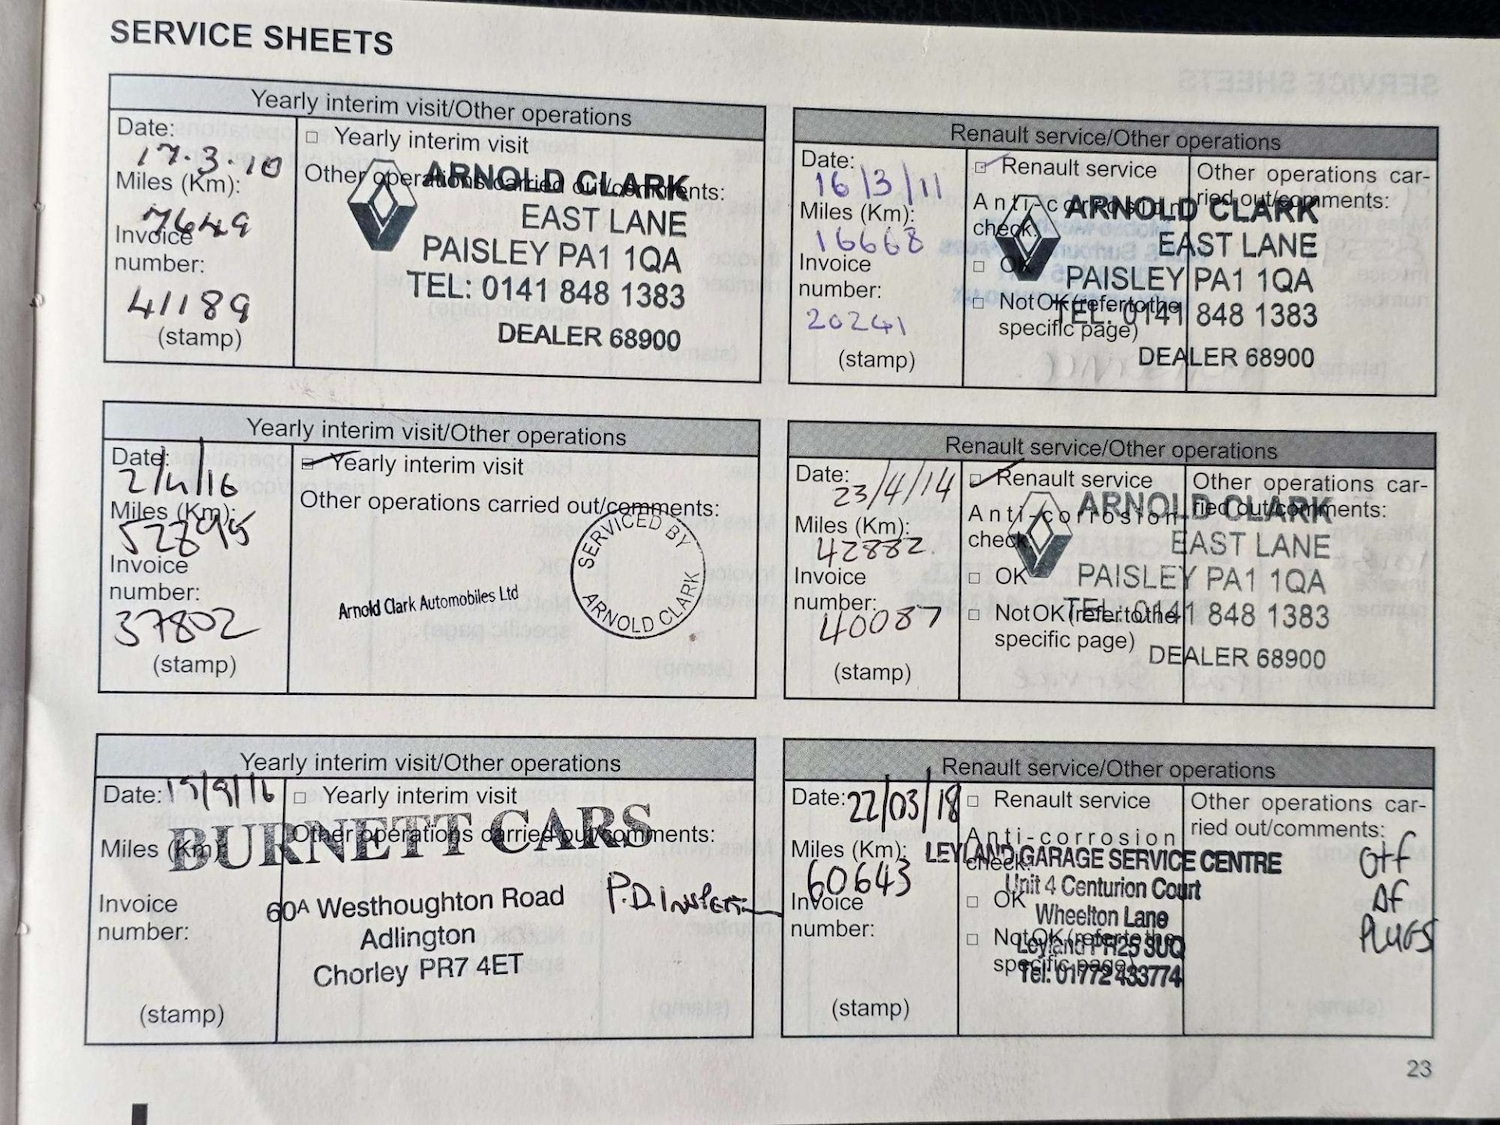 SERVICE SHEETS
Yearly interim visit/Other operations
Date:
17.3.10
Miles (Km):
7649
Invoice
number:
41189
(stamp)
□ Yearly interim visit
Other operations carried out/comments:
ARNOLD CLARK
EAST LANE
PAISLEY PA1 1QA
TEL: 0141 848 1383
DEALER 68900
Renault service/Other operations
Date:
16/3/11
Miles (Km):
16668
Invoice
number:
20241
(stamp)
Renault service
Anti-corrosion
check:
□ OK
□ Not OK (refer to the
specific page)
Other operations car-
ried out/comments:
ARNOLD CLARK
EAST LANE
PAISLEY PA1 1QA
TEL: 0141 848 1383
DEALER 68900
Yearly interim visit/Other operations
Date:
2/4/16
Miles (Km):
52895
Invoice
number:
37802
(stamp)
Yearly interim visit
Other operations carried out/comments:
Arnold Clark Automobiles Ltd
SERVICED BY
ARNOLD CLARK
Renault service/Other operations
Date:
23/4/14
Miles (Km):
42882
Invoice
number:
40087
(stamp)
Renault service
Anti-corrosion
check:
□ OK
□ Not OK (refer to the
specific page)
Other operations car-
ried out/comments:
ARNOLD CLARK
EAST LANE
PAISLEY PA1 1QA
TEL: 0141 848 1383
DEALER 68900
Yearly interim visit/Other operations
Date:
Miles (Km)
Invoice
number:
(stamp)
□ Yearly interim visit
Other operations carried out/comments:
BURNETT CARS
60A Westhoughton Road
Adlington
Chorley PR7 4ET
P.D.
Renault service/Other operations
Date: 22/03/18
Miles (Km):
60643
Invoice
number:
(stamp)
□ Renault service
Anti-corrosion
check:
□ OK
□ Not OK (refer to the
specific page)
Other operations car-
ried out/comments:
LEYLAND GARAGE SERVICE CENTRE
Unit 4 Centurion Court
Wheelton Lane
Leyland PR25 3UQ
Tel: 01772 433774
Off
AF
PLUGS
23